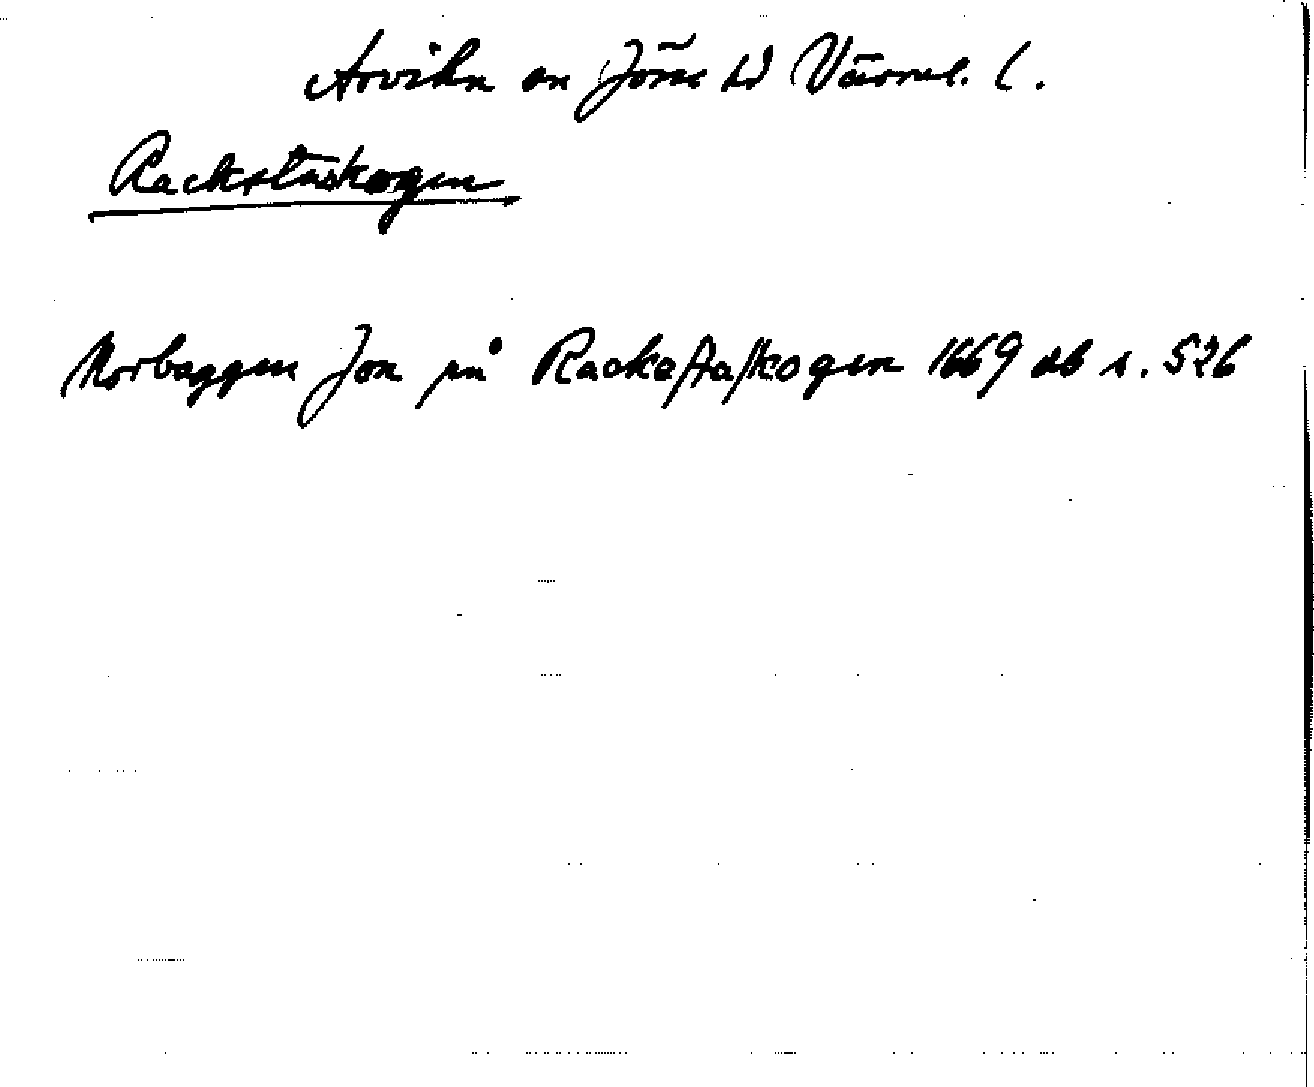 Arvika sn Jösse hd Värml. l.
Rackstaskogen
Norbaggen Jon på Rackeſtaſkogen 1669 db s. 526